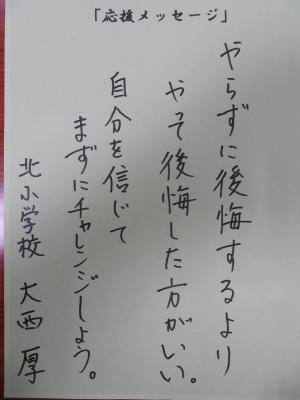 「応援メッセージ」
やらずに後悔するより
やって後悔した方がいい。
自分を信じて
まずにチャレンジしよう。
北小学校 大西 厚